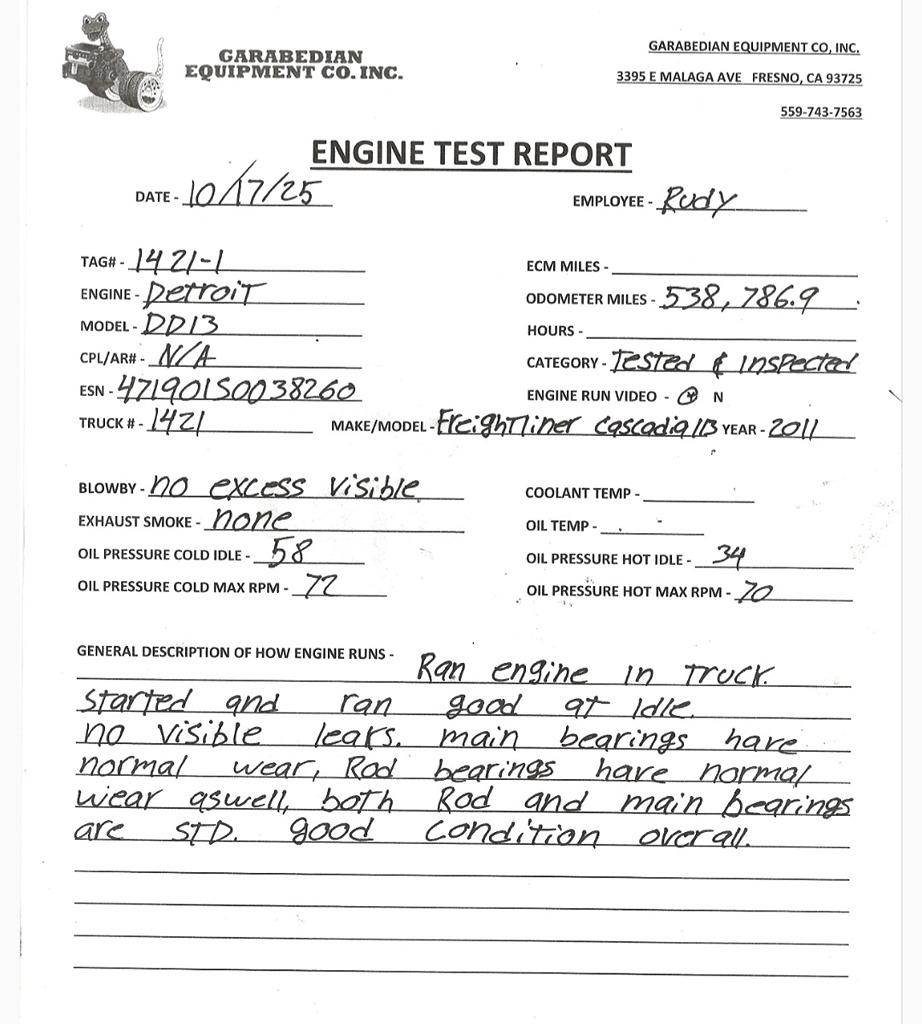 GARABEDIAN
EQUIPMENT CO. INC.
GARABEDIAN EQUIPMENT CO, INC.
3395 E MALAGA AVE FRESNO, CA 93725
559-743-7563
ENGINE TEST REPORT
DATE - 10/17/25 EMPLOYEE - Rudy
TAG# - 1421-1 ECM MILES -
ENGINE - Detroit ODOMETER MILES - 538,786.9
MODEL - DD13 HOURS -
CPL/AR# - N/A CATEGORY - Tested & Inspected
ESN - 471901S0038260 ENGINE RUN VIDEO - Y N
TRUCK # - 1421 MAKE/MODEL - Freightliner Cascadia 113 YEAR - 2011
BLOWBY - no excess visible COOLANT TEMP -
EXHAUST SMOKE - none OIL TEMP -
OIL PRESSURE COLD IDLE - 58 OIL PRESSURE HOT IDLE - 34
OIL PRESSURE COLD MAX RPM - 72 OIL PRESSURE HOT MAX RPM - 70
GENERAL DESCRIPTION OF HOW ENGINE RUNS - Ran engine in truck.
started and ran good at idle.
no visible leaks. main bearings have
normal wear, Rod bearings have normal
wear aswell, both Rod and main bearings
are STD. good condition overall.